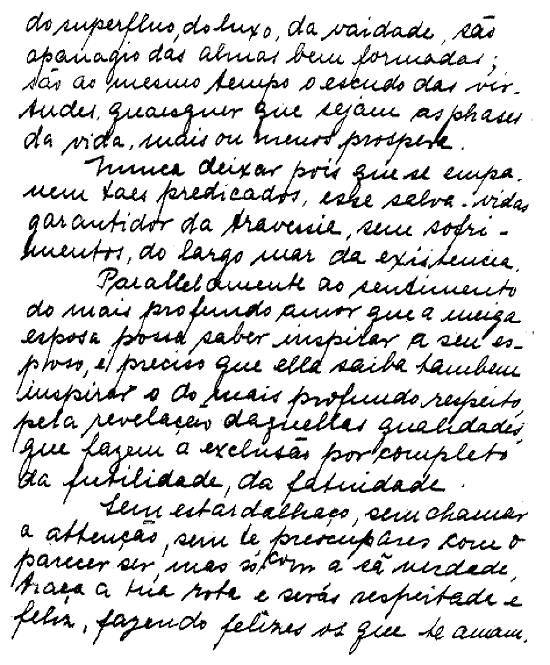 do superfluo, do luxo, da vaidade, são
apanagio das almas bem formadas;
são ao mesmo tempo o escudo das vir-
tudes, quaesquer que sejam as phases
da vida, mais ou menos prospera.
Nunca deixar pois que se empa-
nem taes predicados, esse salva-vidas
garantidor da travessia, sem sofri-
mentos, do largo mar da existencia.
Parallelamente ao sentimento
do mais profundo amor que a meiga
esposa possa saber inspirar a seu es-
poso, é preciso que ella saiba tambem
inspirar o do mais profundo respeito,
pela revelação daquellas qualidades,
que fazem a exclusão por completo
da futilidade, da fatuidade.
Sem estardalhaço, sem chamar
a attenção, sem te preocupares com o
parecer ser, mas só, com a sã verdade,
traça a tua rota e serás respeitada e
feliz, fazendo felizes os que te amam.